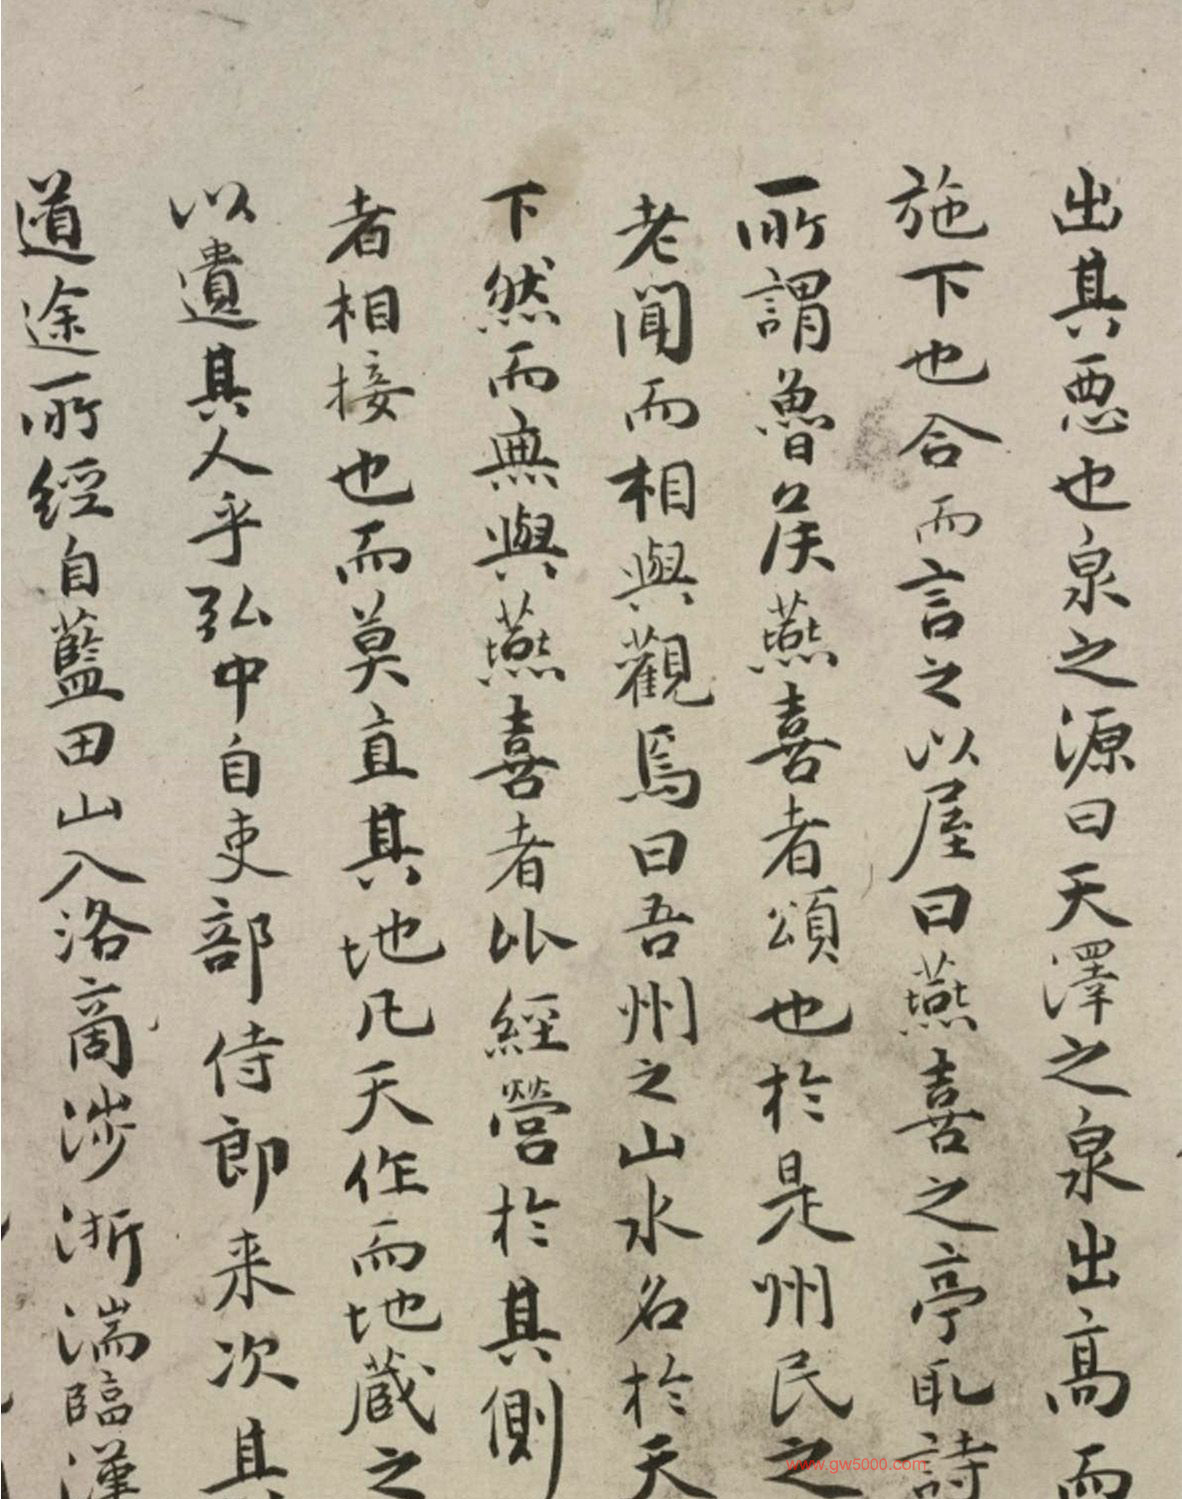 出其悪也泉之源曰天澤之泉出高而
施下也合而言之以屋曰燕喜之亭取詩
所謂魯侯燕喜者頌也於是州民之
老聞而相與觀焉曰吾州之山水名於天
下然而無與燕喜者比經營於其側
者相接也而莫直其地凡天作而地蔵之
以遺其人乎弘中自吏部侍郎来次其
道途所經自藍田山入洛商涉淅湍臨漢
www.gw5000.com